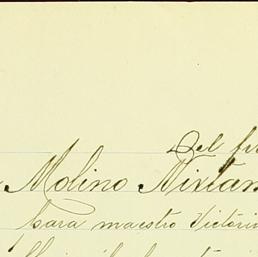 Del fir
Molino Nixtam
para maestro Victorin